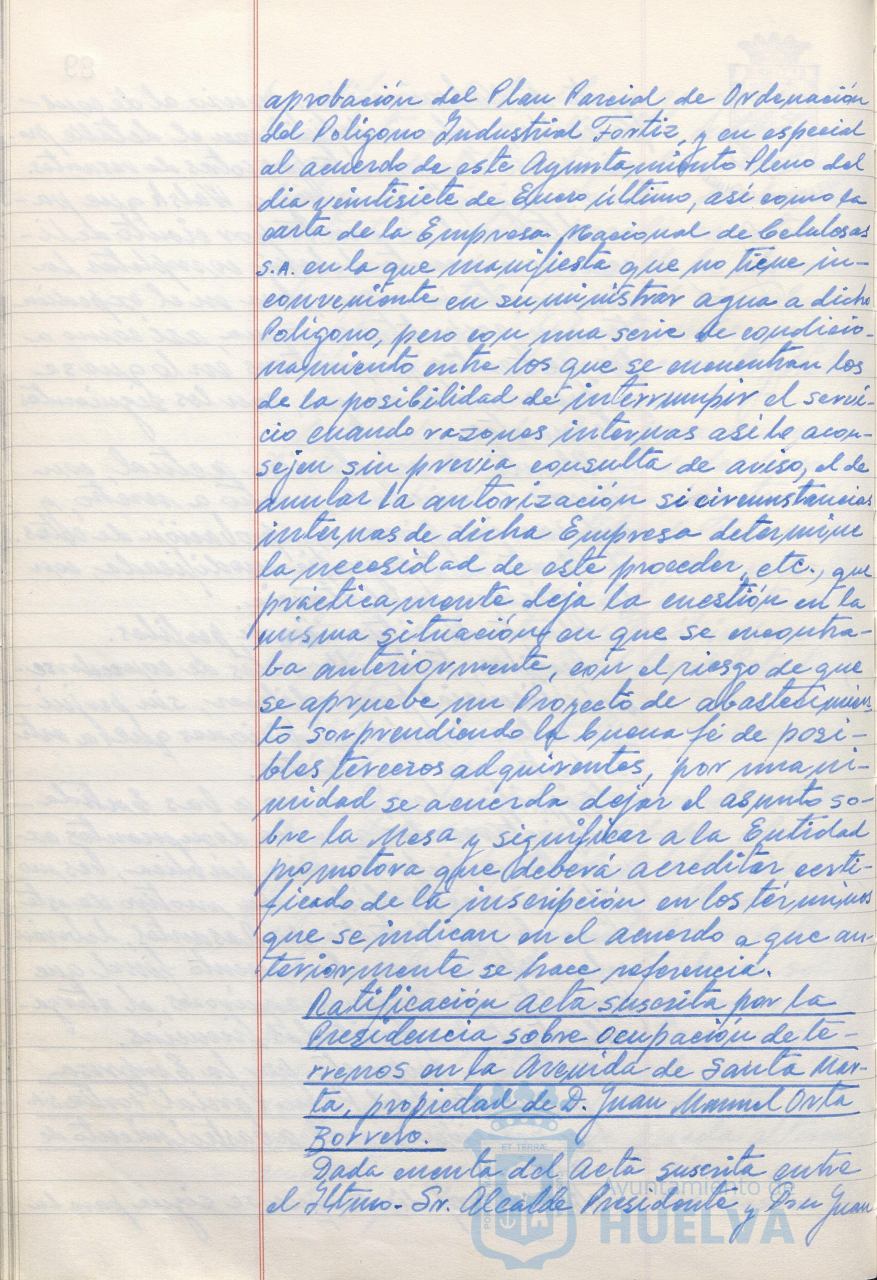 aprobación del Plan Parcial de Ordenación
del Polígono Industrial Fortiz, y en especial
al acuerdo de este Ayuntamiento Pleno del
dia veintisiete de Enero último, así como la
carta de la Empresa Nacional de Celulosas
S.A. en la que manifiesta que no tiene in-
conveniente en suministrar agua a dicho
Polígono, pero con una serie de condicio-
namiento entre los que se encuentran los
de la posibilidad de interrumpir el servi-
cio cuando razones internas así lo acon-
sejen sin previa consulta de aviso, el de
anular la autorización si circunstancias
internas de dicha Empresa determine
la necesidad de este proceder, etc., que
prácticamente deja la cuestión en la
misma situación en que se encontra-
ba anteriormente, con el riesgo de que
se apruebe un Proyecto de abastecimien-
to sorprendiendo la buena fé de posi-
bles terceros adquirentes, por unani-
midad se acuerda dejar el asunto so-
bre la Mesa y significar a la Entidad
promotora que deberá acreditar certi-
ficado de la inscripción en los términos
que se indican en el acuerdo a que an-
teriormente se hace referencia.
Ratificación Acta suscrita por la
Presidencia sobre ocupación de te-
rrenos en la Avenida de Santa Mar-
ta, propiedad de D. Juan Manuel Orta
Borrero.
Dada cuenta del Acta suscrita entre
el Iltmo. Sr. Alcalde Presidente y Don Juan
Ayuntamiento de
HUELVA